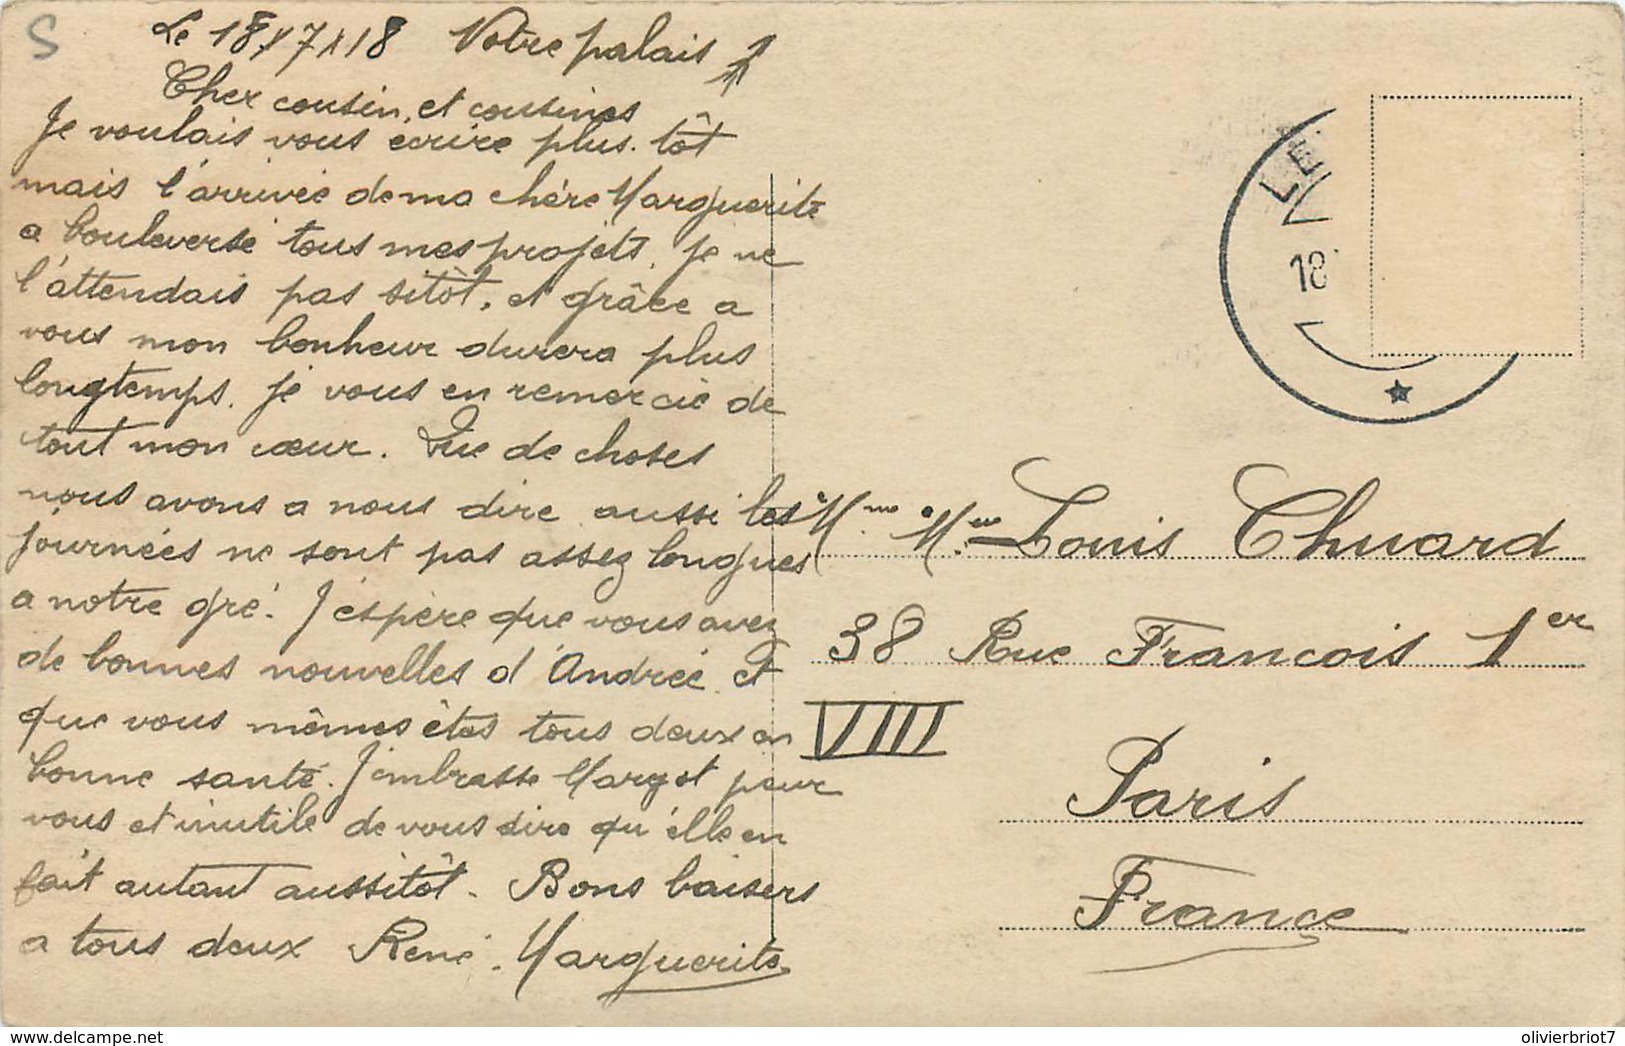 S
Le 18 x 7 x 18 Votre palais
Cher cousin, et cousines
Je voulais vous écrire plus tôt
mais l'arrivée de ma chère Marguerite
a bouleversé tous mes projets, je ne
l'attendais pas sitôt, et grâce a
vous mon bonheur durera plus
longtemps, je vous en remercie de
tout mon cœur. Que de choses
nous avons a nous dire aussi les
journées ne sont pas assez longues
a notre gré. J'éspère que vous avez
de bonnes nouvelles d'Andrée et
que vous mêmes êtes tous deux en
bonne santé. J'embrasse Margot pour
vous et inutile de vous dire qu'elle en
fait autant aussitôt. Bons baisers
a tous deux René. Marguerite
LE
18
Louis Chuard
38 Rue Francois 1er
VIII
Paris
France
www.delcampe.net
olivierbriot7